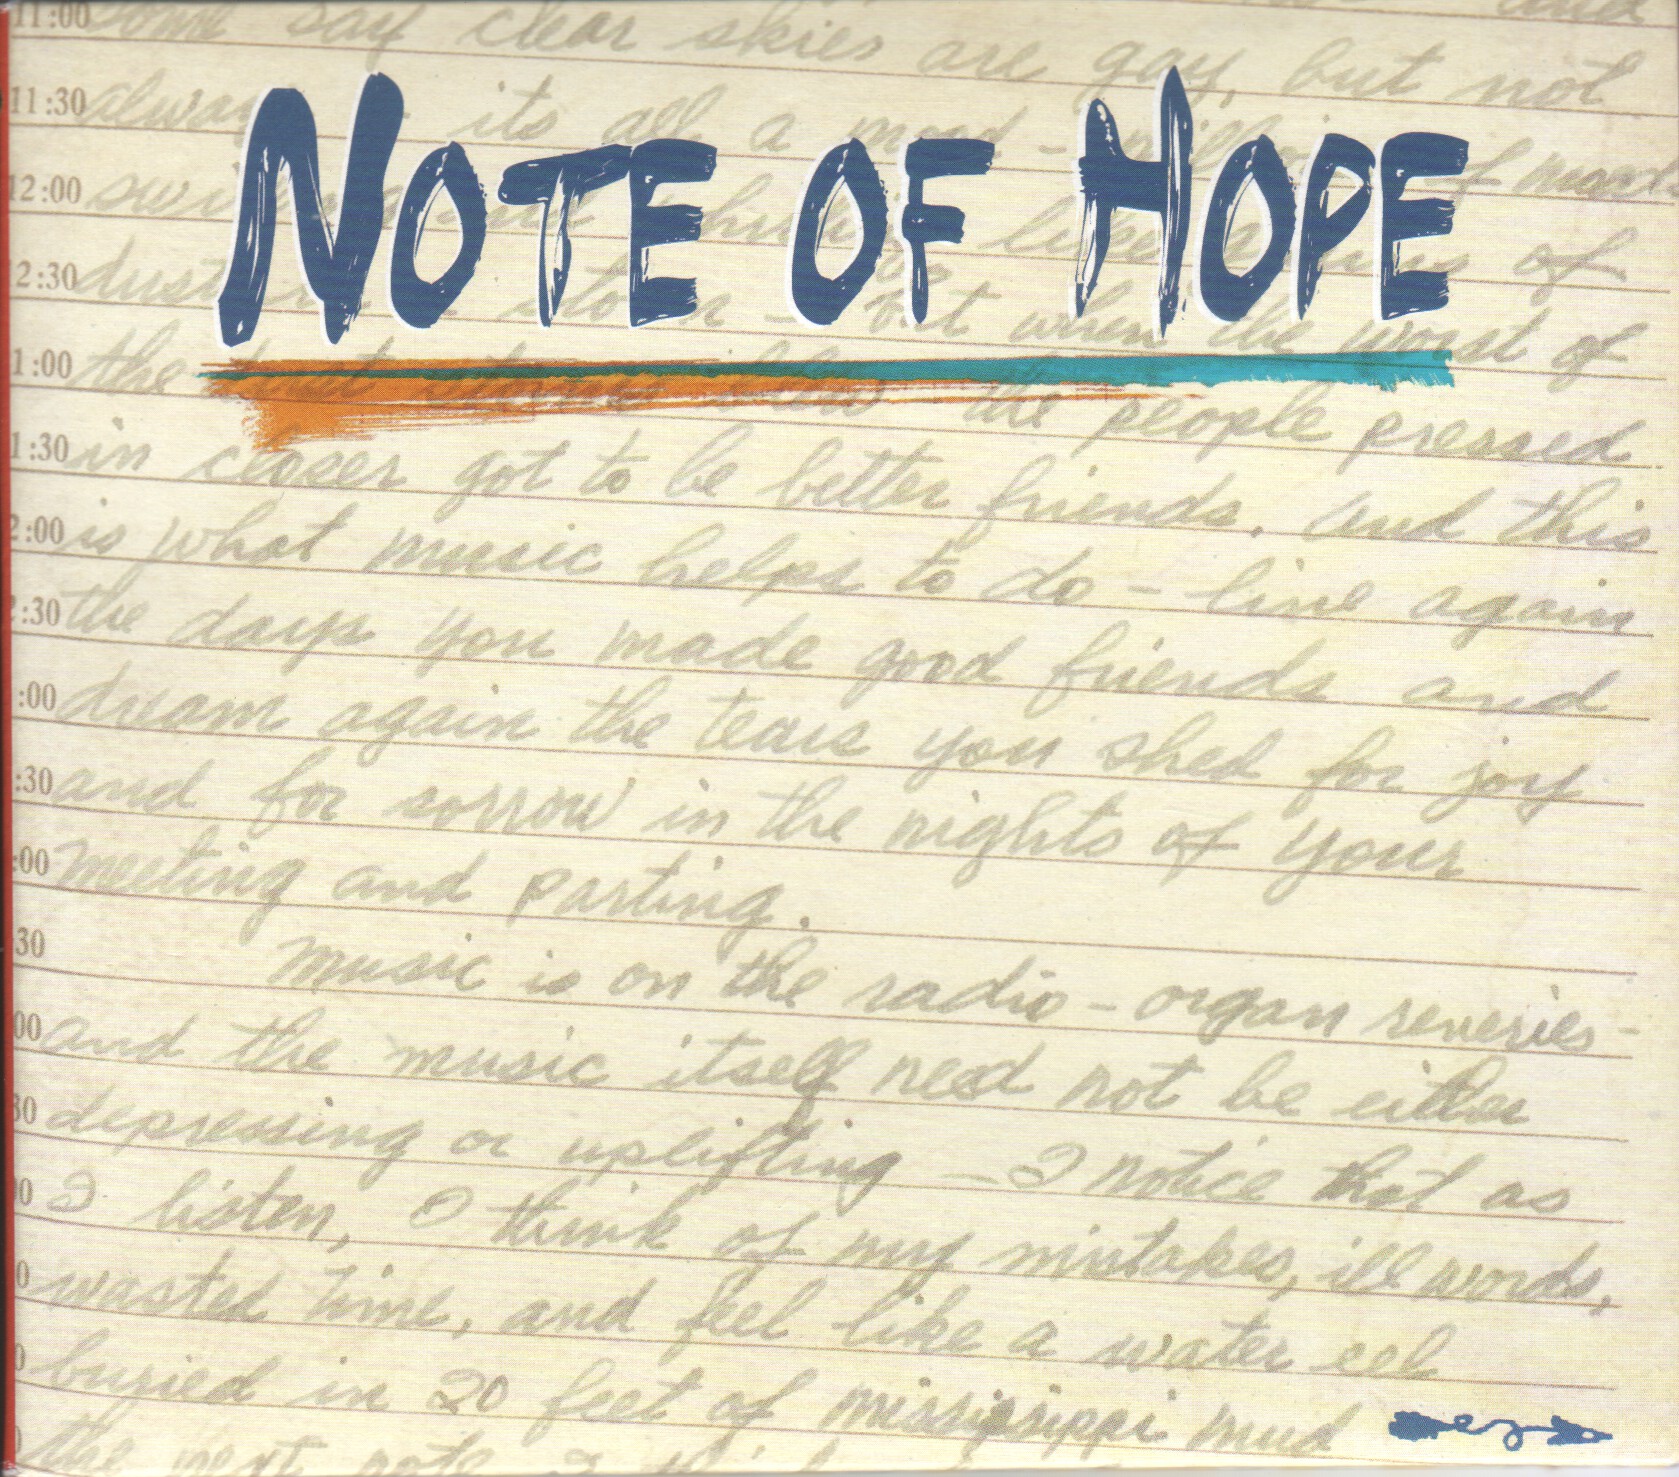 NOTE OF HOPE
11:00 some say clear skies are gay, but not
11:30 always - its all a mood -
12:00 of
2:30 dust - but when the worst of
1:00 the dust storm blew the people pressed
1:30 in closer got to be better friends. and this
2:00 is what music helps to do - live again
:30 the days you made good friends and
:00 dream again the tears you shed for joy
:30 and for sorrow in the nights of your
:00 meeting and parting.
30 music is on the radio - organ reveries -
00 and the music itself need not be either
30 depressing or uplifting - I notice that as
00 I listen, I think of my mistakes, ill words,
0 wasted time, and feel like a water eel
0 buried in 20 feet of mississippi mud
the next note I